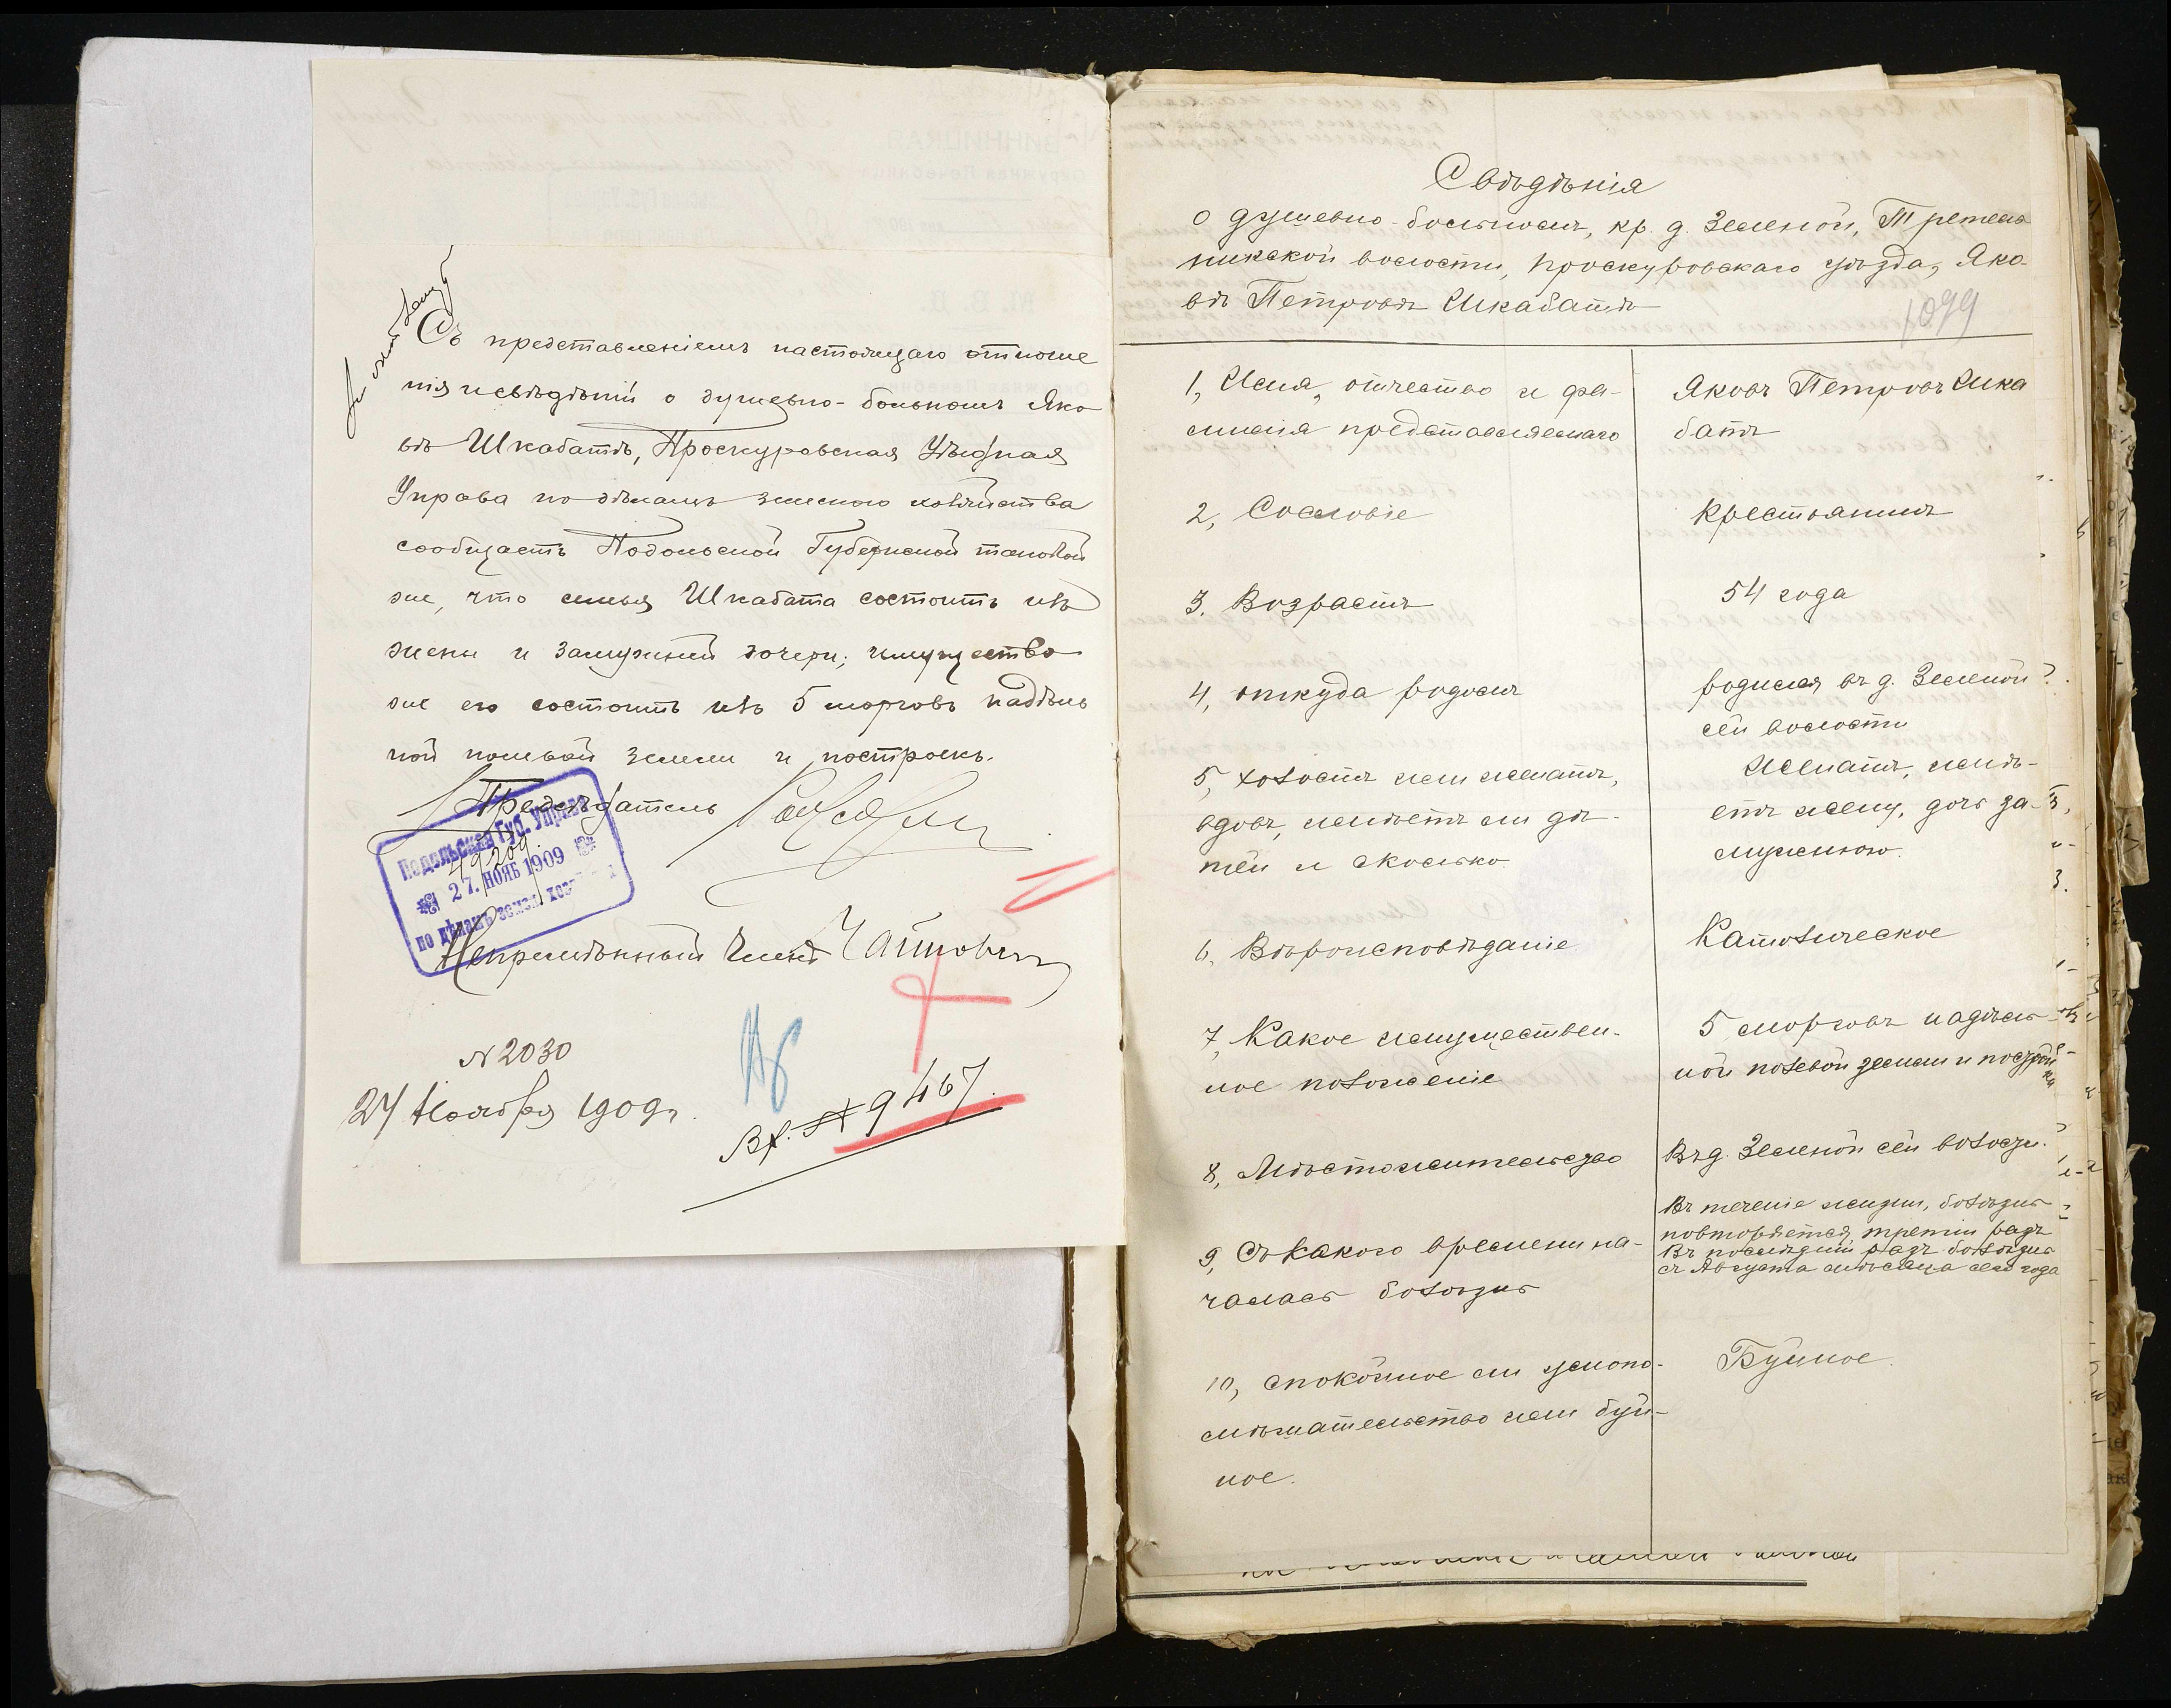 Съ представленiемъ настоящаго отноше
нiя и свѣдѣнiй о душевно-больномъ Яко
вѣ Шкабатѣ, Проскуровская Уѣздная
Управа по дѣламъ земскаго хозяйства
сообщаетъ Подольской Губернской таковой
же, что семья Шкабата состоитъ изъ
жены и замужней дочери; имущество
же его состоитъ изъ 5 морговъ надѣль
ной полевой земли и построекъ.
Предсѣдатель
Подольская Губ. Управа
49209
27. НОЯБ 1909
по дѣламъ земск. хоз
Непремѣнный Членъ
N 2030
24 Ноября 1909 г.
Вх. № 9467.
Свѣдѣнiя
о душевно-больномъ, кр. д. Зеленой, Третель
никской волости, Проскуровскаго уѣзда, Яко-
вѣ Петровѣ Шкабатѣ
1099
1, Имя, отчество и фа-
милiя представляемаго
Яковъ Петровъ Шка
батъ
2, Сословiе
Крестьянинъ
3. Возрастъ
54 года
4, откуда родомъ
родился въ д. Зеленой
сей волости
5, холостъ или женатъ,
вдовъ, имѣетъ ли дѣ-
тей и сколько.
Женатъ, имѣ-
етъ жену, дочь за-
мужнюю.
6, Вѣроисповѣданiе
Католическое
7, Какое имуществен-
ное положенiе
5 морговъ надѣль
ной полевой земли и построй
ки
8, Мѣстожительство
Въ д. Зеленой сей волости.
9, Съ какого времени на-
чалась болѣзнь
Въ теченiе жизни, болѣзнь
повторяется третiй разъ
Въ послѣднiй разъ болѣзнь
съ Августа мѣсяца сего года
10, спокойное ли умопо-
мѣшательство или буй-
ное.
Буйное.